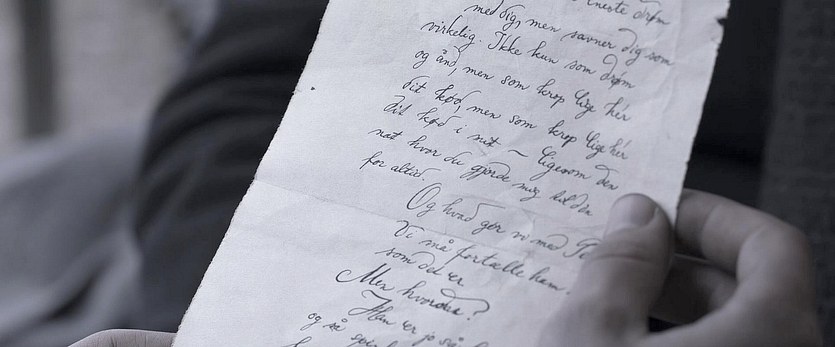 eneste drøm
med dig, men savner dig som
virkelig. Ikke kun som drøm
og ånd, men som krop lige her
dit kød, men som krop lige her
dit kød i mit ~ ligesom den
nat hvor du gjorde mig hel den
for altid.
Og hvad gør vi med
Vi må fortælle ham.
som det er
Men hvordan?
Han er jo så
og så